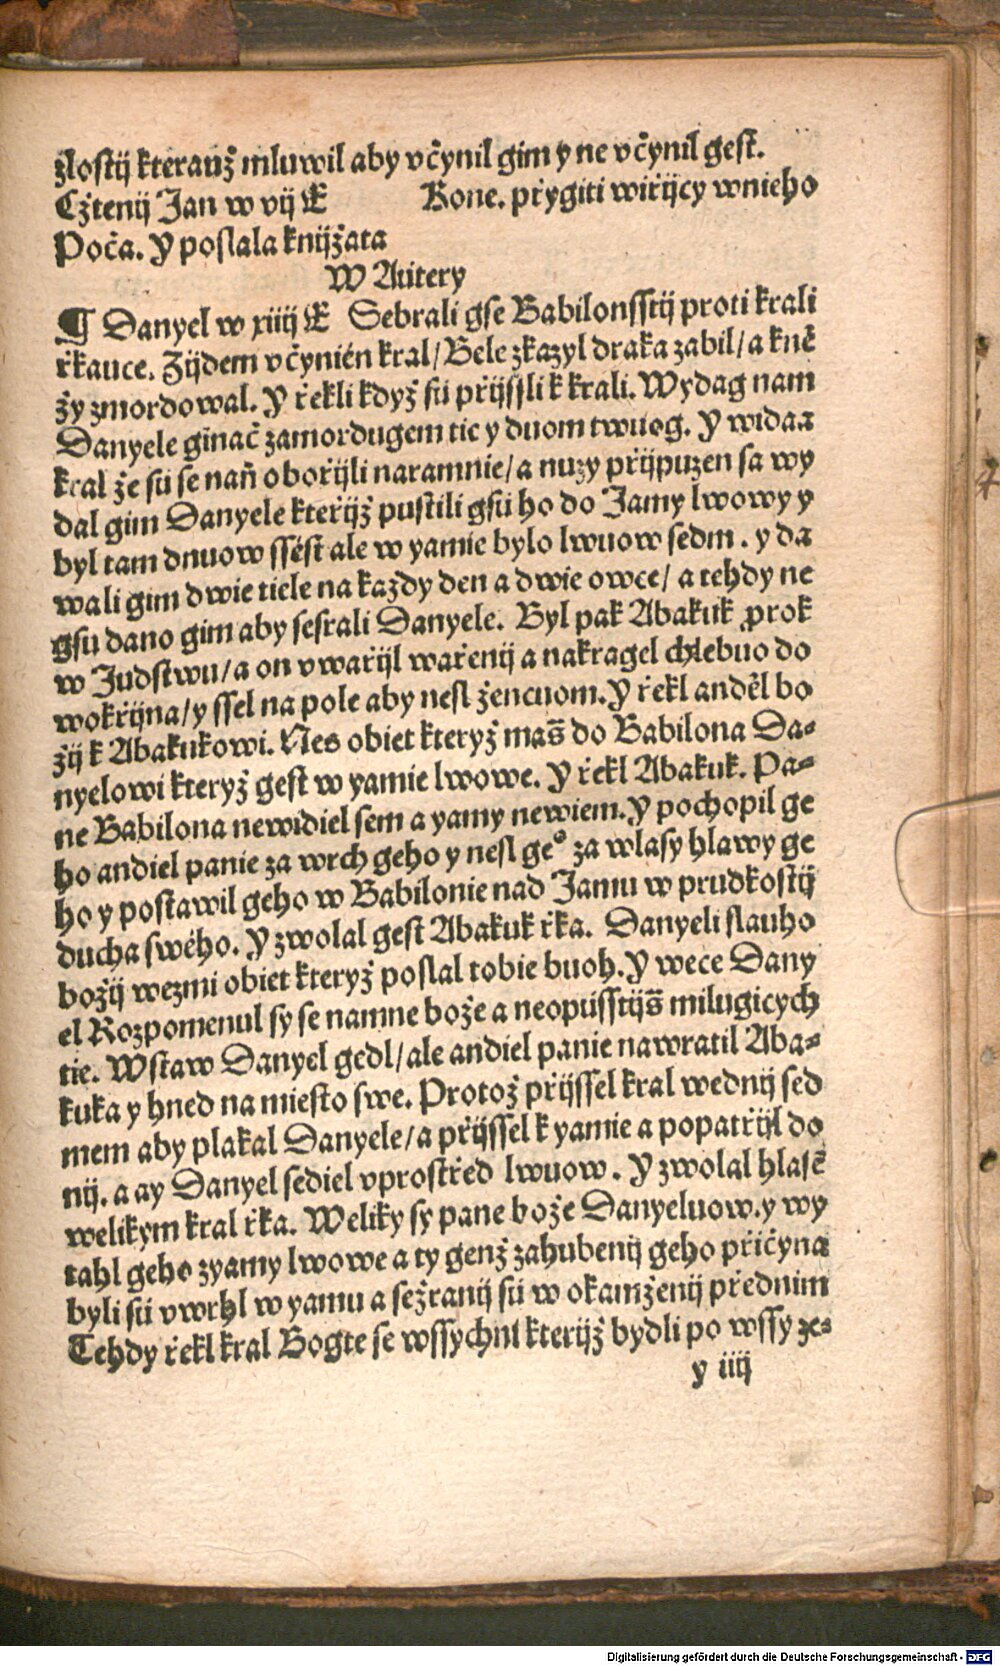 zlostij kterauž mluwil aby včynil gim y ne včynil gest.
Cžtenij Jan w vij K Kone. přygiti wiřijcy wnieho
Poča. Y poslala knijžata
W Autery
¶ Danyel w xiiij K Sebrali gse Babilonsstij proti krali
řkauce. Zijdem včynién kral/Bele zkazyl draka zabil/a kně
žy zmordowal. Y řekli když sú přijssli k krali. Wydag nam
Danyele gináč zamordugem tie y duom twuog. Y widaa
kral že sú se naň obořijli naramnie/a nuzy přijpuzen sa wy
dal gim Danyele kteřijž pustili gsú ho do Jamy lwowy y
byl tam dnuow ssěst ale w yamie bylo lwuow sedm. y da
wali gim dwie tiele na každy den a dwie owce/ a tehdy ne
gsu dano gim aby sesrali Danyele. Byl pak Abakuk prok
w Judstwu/a on vwařijl wařenij a nakragel chlebuo do
wokřijna/y ssel na pole aby nesl žencuom. Y řekl anděl bo
žij k Abakukowi. Nes obiet kteryž maš do Babilona Da-
nyelowi kteryž gest w yamie lwowe. Y řekl Abakuk. Pa-
ne Babilona newidiel sem a yamy newiem. Y pochopil ge
ho andiel panie za wrch geho y nesl geº za wlasy hlawy ge
ho y postawil geho w Babilonie nad Jamu w prudkostij
ducha swého. Y zwolal gest Abakuk řka. Danyeli slauho
božij wezmi obiet kteryž poslal tobie buoh. Y wece Dany
el Rozpomenul sy se namne bože a neopusstijš milugicych
tie. Wstaw Danyel gedl/ale andiel panie nawratil Aba-
kuka y hned na miesto swe. Protož přijssel kral wednij sed
mem aby plakal Danyele/a přijssel k yamie a popatřijl do
nij. a ay Danyel sediel vprostřed lwuow. Y zwolal hlasē
welikym kral řka. Weliky sy pane bože Danyeluow. y wy
tahl geho zyamy lwowe a ty genž zahubenij geho přičyna
byli sú vwrhl w yamu a sežranij sú w okamženij přednim
Tehdy řekl kral Bogte se wssychni kteřijž bydli po wssy ze-
y iiij
Digitalisierung gefördert durch die Deutsche Forschungsgemeinschaft - DFG